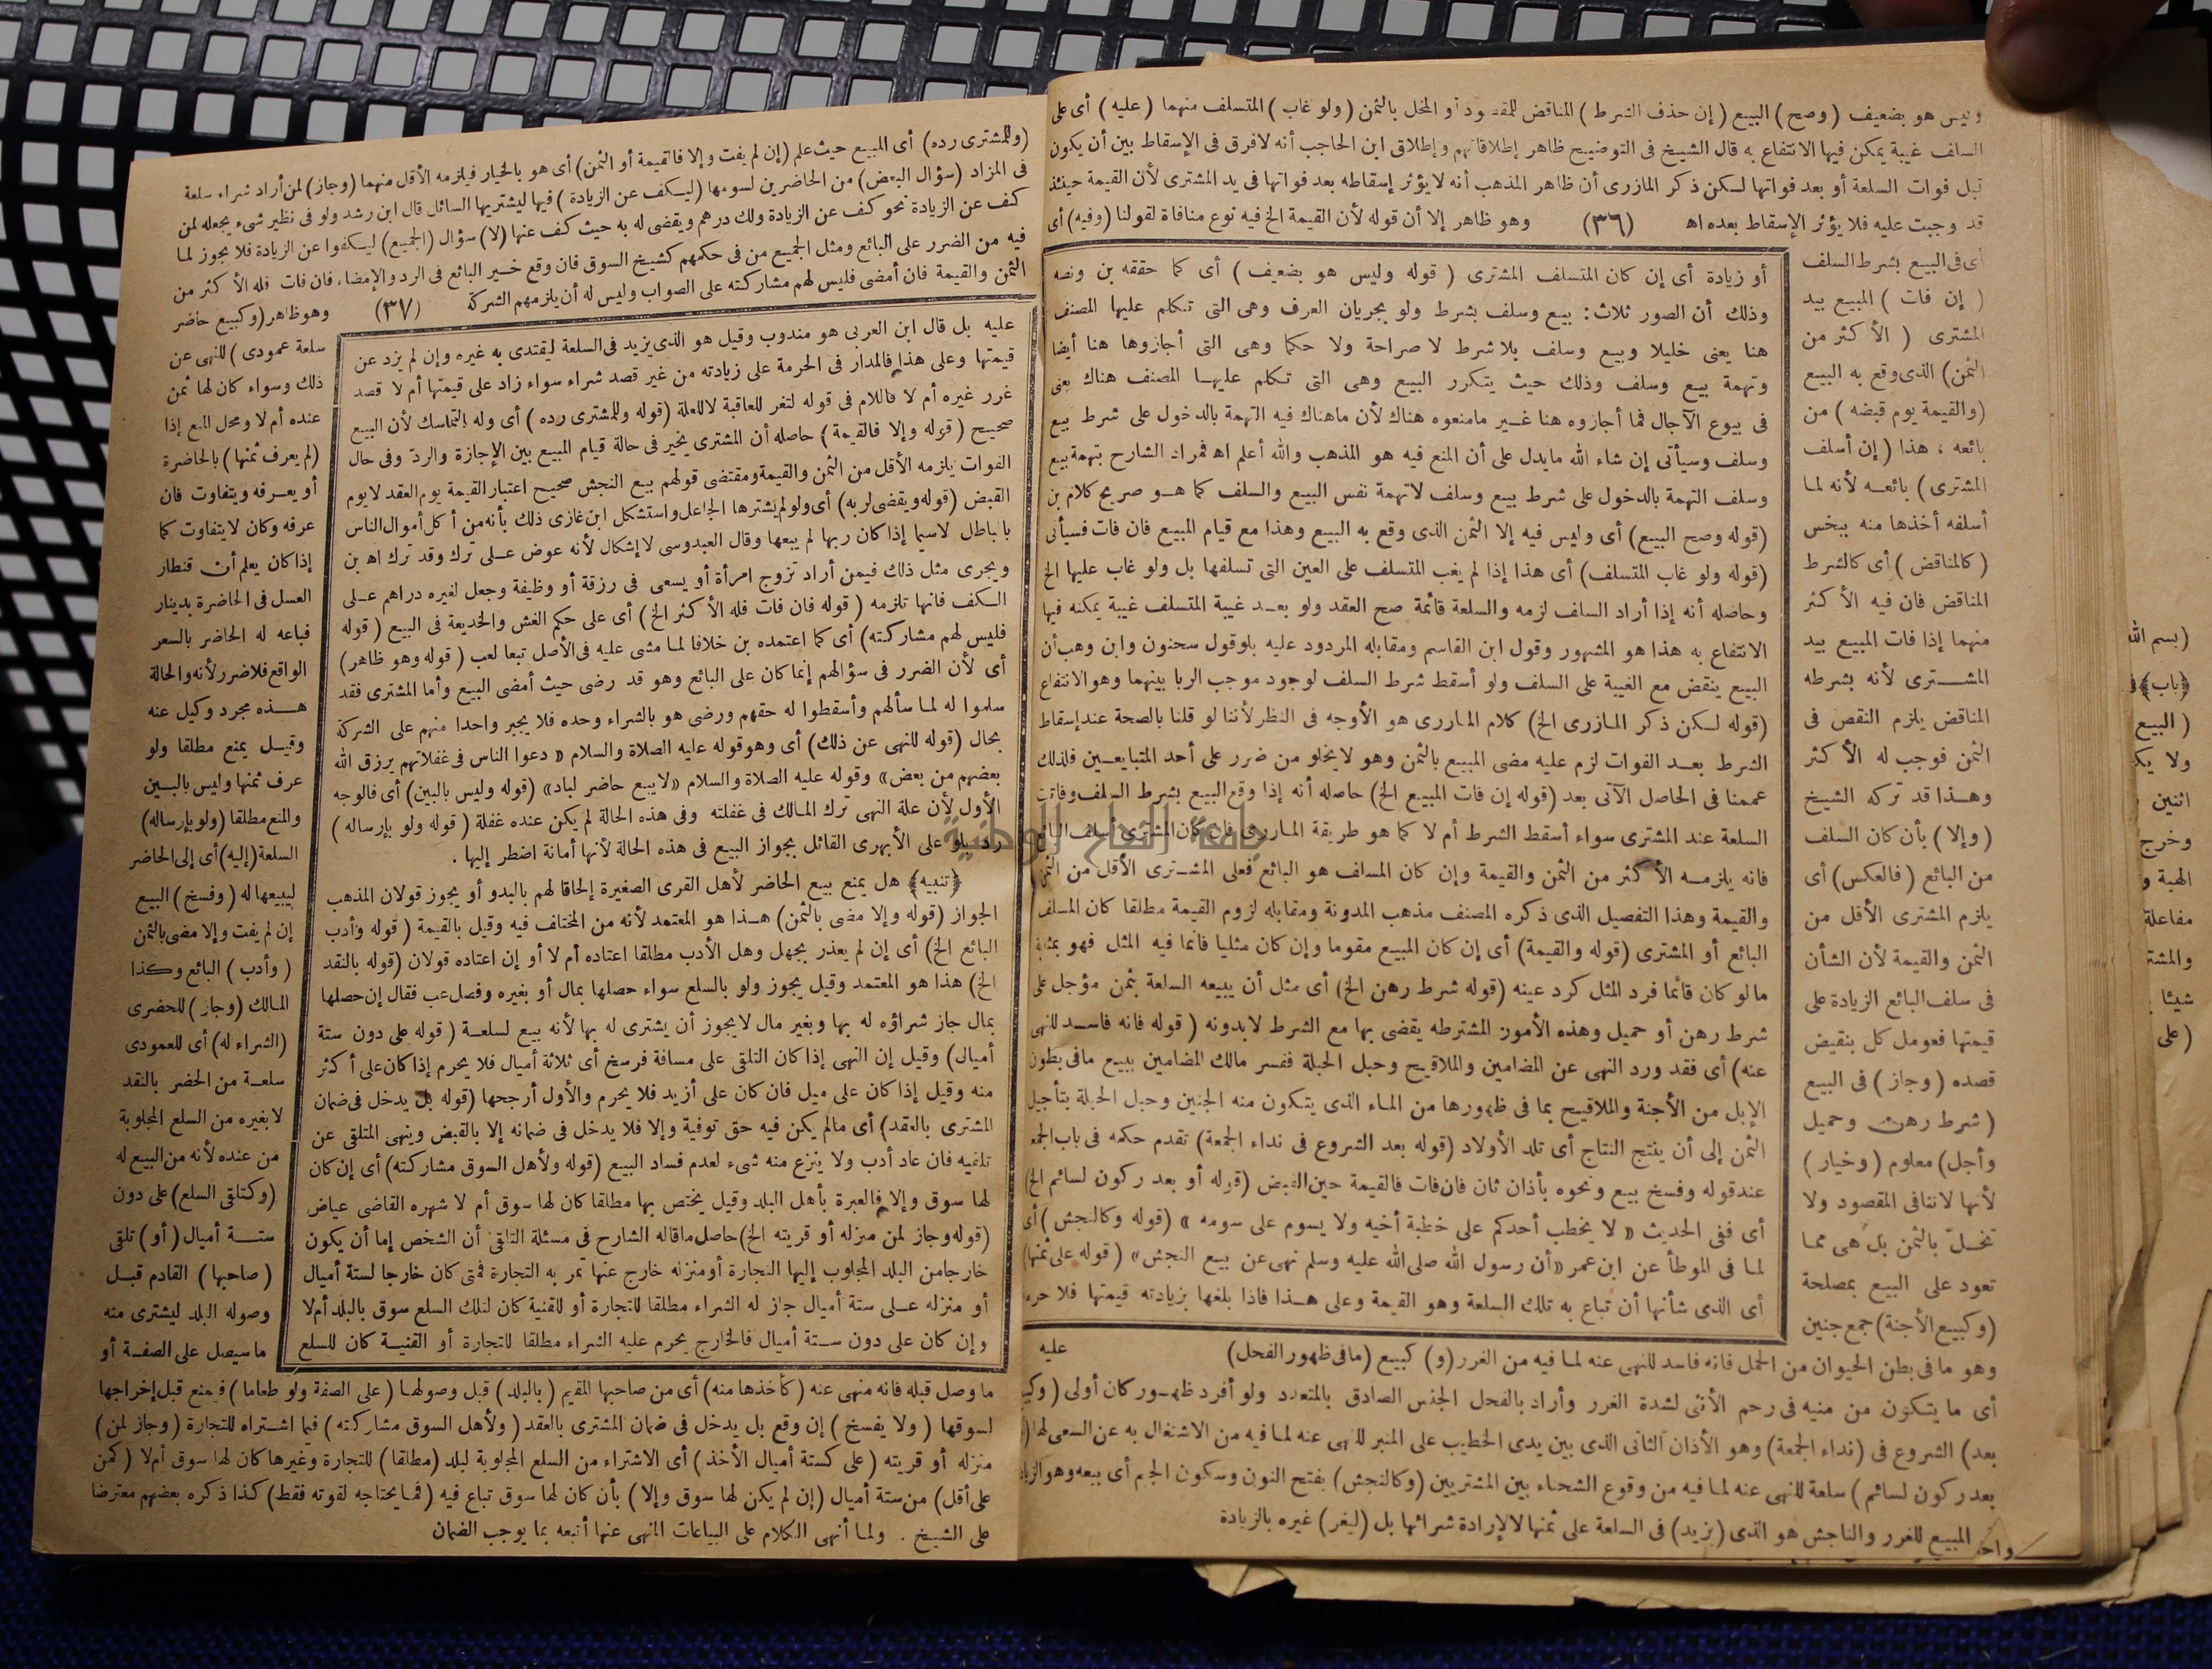 وليس هو بضعيف (وصح) البيع (إن حذف الشرط) المناقض للمقصود أو المخل بالثمن (ولو غاب) المتسلف منهما (عليه) أى على
السلف غيبة يمكن فيها الانتفاع به قال الشيخ فى التوضيح ظاهر إطلاقاتهم وإطلاق ابن الحاجب أنه لا فرق فى الإسقاط بين أن يكون
قبل فوات السلعة أو بعد فواتها لكن ذكر المازرى أن ظاهر المذهب أنه لا يؤثر إسقاطه بعد فواتها فى يد المشترى لأن القيمة حينئذ
قد وجبت عليه فلا يؤثر الإسقاط بعده اه (٣٦) وهو ظاهر إلا أن قوله لأن القيمة الخ فيه نوع منافاة لقولنا (وفيه) أى
أى فى البيع بشرط السلف
(إن فات) المبيع بيد
المشترى (الأكثر من
الثمن) الذى وقع به البيع
(والقيمة يوم قبضه) من
بائعه ، هذا (إن أسلف
المشترى) بائعه لأنه لما
أسلفه أخذها منه ببخس
(كالمناقض) أى كالشرط
المناقض فان فيه الأكثر
منهما إذا فات المبيع بيد
المشترى لأنه بشرطه
المناقض يلزم النقص فى
الثمن فوجب له الأكثر
وهذا قد تركه الشيخ
(وإلا) بأن كان السلف
من البائع (فالعكس) أى
يلزم المشترى الأقل من
الثمن والقيمة لأن الشأن
فى سلف البائع الزيادة على
قيمتها فعومل كل بنقيض
قصده (وجاز) فى البيع
(شرط رهن وحميل
وأجل) معلوم (وخيار)
لأنها لا تنافى المقصود ولا
تخل بالثمن بل هى مما
تعود على البيع بمصلحة
(وكبيع الأجنة) جمع جنين
أو زيادة أى إن كان المتسلف المشترى (قوله وليس هو بضعيف) أى كما حققه بن ونصه
وذلك أن الصور ثلاث: بيع وسلف بشرط ولو بجريان العرف وهى التى تكلم عليها المصنف
هنا يعنى خليلا وبيع وسلف بلا شرط لا صراحة ولا حكما وهى التى أجازوها هنا أيضا
وتهمة بيع وسلف وذلك حيث يتكرر البيع وهى التى تكلم عليها المصنف هناك يعنى
فى بيوع الآجال فما أجازوه هنا غير ما منعوه هناك لأن ما هناك فيه التهمة بالدخول على شرط بيع
وسلف وسيأتى إن شاء الله ما يدل على أن المنع فيه هو المذهب والله أعلم اه فمراد الشارح بتهمة بيع
وسلف التهمة بالدخول على شرط بيع وسلف لا تهمة نفس البيع والسلف كما هو صريح كلام بن
(قوله وصح البيع) أى وليس فيه إلا الثمن الذى وقع به البيع وهذا مع قيام المبيع فان فات فسيأتى
(قوله ولو غاب المتسلف) أى هذا إذا لم يغب المتسلف على العين التى تسلفها بل ولو غاب عليها الخ
وحاصله أنه إذا أراد السلف لزمه والسلعة قائمة صح العقد ولو بعد غيبة المتسلف غيبة يمكنه فيها
الانتفاع به هذا هو المشهور وقول ابن القاسم ومقابله المردود عليه بلو قول سحنون وابن وهب أن
البيع ينقض مع الغيبة على السلف ولو أسقط شرط السلف لوجود موجب الربا بينهما وهو الانتفاع
(قوله لكن ذكر المازرى الخ) كلام المازرى هو الأوجه فى النظر لأننا لو قلنا بالصحة عند إسقاط
الشرط بعد الفوات لزم عليه مضى المبيع بالثمن وهو لا يخلو من ضرر على أحد المتبايعين فلذلك
عممنا فى الحاصل الآتى بعد (قوله إن فات المبيع الخ) حاصله أنه إذا وقع البيع بشرط السلف وفاتت
السلعة عند المشترى سواء أسقط الشرط أم لا كما هو طريقة المازرى فان كان المشترى أسلف البائع
فانه يلزمه الأكثر من الثمن والقيمة وإن كان المسلف هو البائع فعلى المشترى الأقل من الثمن
والقيمة وهذا التفصيل الذى ذكره المصنف مذهب المدونة ومقابله لزوم القيمة مطلقا كان المسلف
البائع أو المشترى (قوله والقيمة) أى إن كان المبيع مقوما وإن كان مثليا فانما فيه المثل فهو بمثابة
ما لو كان قائما فرد المثل كرد عينه (قوله شرط رهن الخ) أى مثل أن يبيعه السلعة بثمن مؤجل على
شرط رهن أو حميل وهذه الأمور المشترطه يقضى بها مع الشرط لا بدونه (قوله فانه فاسد للنهى
عنه) أى فقد ورد النهى عن المضامين والملاقيح وحبل الحبلة ففسر مالك المضامين ببيع ما فى بطون
الإبل من الأجنة والملاقيح بما فى ظهورها من الماء الذى يتكون منه الجنين وحبل الحبلة بتأجيل
الثمن إلى أن ينتج النتاج أى تلد الأولاد (قوله بعد الشروع فى نداء الجمعة) تقدم حكمه فى باب الجمعة
عند قوله وفسخ بيع ونحوه بأذان ثان فان فات فالقيمة حين القبض (قوله أو بعد ركون لسائم الخ)
أى ففى الحديث « لا يخطب أحدكم على خطبة أخيه ولا يسوم على سومه » (قوله وكالنجش) أى
لما فى الموطأ عن ابن عمر «أن رسول الله صلى الله عليه وسلم نهى عن بيع النجش» (قوله على ثمنها)
أى الذى شأنها أن تباع به تلك السلعة وهو القيمة وعلى هذا فاذا بلغها بزيادته قيمتها فلا حرمة
عليه
وهو ما فى بطن الحيوان من الحمل فانه فاسد للنهى عنه لما فيه من الغرر (و) كبيع (ما فى ظهور الفحل)
أى ما يتكون من منيه فى رحم الأنثى لشدة الغرر وأراد بالفحل الجنس الصادق بالمتعدد ولو أفرد ظهور كان أولى
بعد) الشروع فى (نداء الجمعة) وهو الأذان الثانى الذى بين يدى الخطيب على المنبر للنهى عنه لما فيه من الاشتغال به عن السعى لها
بعد ركون لسائم) سلعة للنهى عنه لما فيه من وقوع الشحناء بين المشتريين (وكالنجش) بفتح النون وسكون الجيم أى بيعه وهو
المبيع للغرر والناجش هو الذى (يزيد) فى السلعة على ثمنها لا لإرادة شرائها بل (ليغر) غيره بالزيادة
(وللمشترى رده) أى المبيع حيث علم (إن لم يفت وإلا فالقيمة أو الثمن) أى هو بالخيار فيلزمه الأقل منهما (وجاز) لمن أراد شراء سلعة
فى المزاد (سؤال البعض) من الحاضرين لسومها (ليكف عن الزيادة) فيها ليشتريها السائل قال ابن رشد ولو فى نظير شىء يجعله لمن
كف عن الزيادة نحو كف عن الزيادة ولك درهم ويقضى له به حيث كف عنها (لا) سؤال (الجميع) ليكفوا عن الزيادة فلا يجوز لما
فيه من الضرر على البائع ومثل الجميع من فى حكمهم كشيخ السوق فان وقع خير البائع فى الرد والإمضاء فان فات فله الأكثر من
الثمن والقيمة فان أمضى فليس لهم مشاركته على الصواب وليس له أن يلزمهم الشركة (٣٧) وهو ظاهر (وكبيع حاضر
سلعة عمودى) للنهى عن
ذلك وسواء كان لها ثمن
عنده أم لا ومحل المنع إذا
(لم يعرف ثمنها) بالحاضرة
أو يعرفه ويتفاوت فان
عرفه وكان لا يتفاوت كما
إذا كان يعلم أن قنطار
العسل فى الحاضرة بدينار
فباعه له الحاضر بالسعر
الواقع فلا ضرر لأنه والحالة
هذه مجرد وكيل عنه
وقيل يمنع مطلقا ولو
عرف ثمنها وليس بالبين
والمنع مطلقا (ولو بإرساله)
السلعة (إليه) أى إلى الحاضر
ليبيعها له (وفسخ) البيع
إن لم يفت وإلا مضى بالثمن
(وأدب) البائع وكذا
المالك (وجاز) للحضرى
(الشراء له) أى للعمودى
سلعة من الحضر بالنقد
لا بغيره من السلع المجلوبة
من عنده لأنه من البيع له
(وكتلقى السلع) على دون
ستة أميال (أو) تلقى
(صاحبها) القادم قبل
وصوله البلد ليشترى منه
ما سيصل على الصفة أو
عليه بل قال ابن العربى هو مندوب وقيل هو الذى يزيد فى السلعة ليقتدى به غيره وإن لم يزد عن
قيمتها وعلى هذا فالمدار فى الحرمة على زيادته من غير قصد شراء سواء زاد على قيمتها أم لا قصد
غرر غيره أم لا فاللام فى قوله لتغر للعاقبة لا للعلة (قوله وللمشترى رده) أى وله التماسك لأن البيع
صحيح (قوله وإلا فالقيمة) حاصله أن المشترى يخير فى حالة قيام المبيع بين الإجازة والرد وفى حال
الفوات يلزمه الأقل من الثمن والقيمة ومقتضى قولهم بيع النجش صحيح اعتبار القيمة يوم العقد لا يوم
القبض (قوله ويقضى لربه) أى ولو لم يشترها الجاعل واستشكل ابن غازى ذلك بأنه من أكل أموال الناس
بالباطل لا سيما إذا كان ربها لم يبعها وقال العبدوسى لا إشكال لأنه عوض على ترك وقد ترك اه بن
ويجرى مثل ذلك فيمن أراد تزوج امرأة أو يسعى فى رزقة أو وظيفة وجعل لغيره دراهم على
الكف فانها تلزمه (قوله فان فات فله الأكثر الخ) أى على حكم الغش والخديعة فى البيع (قوله
فليس لهم مشاركته) أى كما اعتمده بن خلافا لما مشى عليه فى الأصل تبعا لعب (قوله وهو ظاهر)
أى لأن الضرر فى سؤالهم إنما كان على البائع وهو قد رضى حيث أمضى البيع وأما المشترى فقد
سلموا له لما سألهم وأسقطوا له حقهم ورضى هو بالشراء وحده فلا يجبر واحدا منهم على الشركة
بحال (قوله للنهى عن ذلك) أى وهو قوله عليه الصلاة والسلام « دعوا الناس فى غفلاتهم يرزق الله
بعضهم من بعض» وقوله عليه الصلاة والسلام «لا يبع حاضر لباد» (قوله وليس بالبين) أى فالوجه
الأول لأن علة النهى ترك المالك فى غفلته وفى هذه الحالة لم يكن عنده غفلة (قوله ولو بإرساله)
رد بلو على الأبهرى القائل بجواز البيع فى هذه الحالة لأنها أمانة اضطر إليها .
﴿تنبيه﴾ هل يمنع بيع الحاضر لأهل القرى الصغيرة إلحاقا لهم بالبدو أو يجوز قولان المذهب
الجواز (قوله وإلا مضى بالثمن) هذا هو المعتمد لأنه من المختلف فيه وقيل بالقيمة (قوله وأدب
البائع الخ) أى إن لم يعذر بجهل وهل الأدب مطلقا اعتاده أم لا أو إن اعتاده قولان (قوله بالنقد
الخ) هذا هو المعتمد وقيل يجوز ولو بالسلع سواء حصلها بمال أو بغيره وفصل عب فقال إن حصلها
بمال جاز شراؤه له بها وبغير مال لا يجوز أن يشترى له بها لأنه بيع لسلعة (قوله على دون ستة
أميال) وقيل إن النهى إذا كان التلقى على مسافة فرسخ أى ثلاثة أميال فلا يحرم إذا كان على أكثر
منه وقيل إذا كان على ميل فان كان على أزيد فلا يحرم والأول أرجحها (قوله بل يدخل فى ضمان
المشترى بالعقد) أى ما لم يكن فيه حق توفية وإلا فلا يدخل فى ضمانه إلا بالقبض وينهى المتلقى عن
تلقيه فان عاد أدب ولا ينزع منه شىء لعدم فساد البيع (قوله ولأهل السوق مشاركته) أى إن كان
لها سوق وإلا فالعبرة بأهل البلد وقيل يختص بها مطلقا كان لها سوق أم لا شهره القاضى عياض
(قوله وجاز لمن منزله أو قريته الخ) حاصل ما قاله الشارح فى مسئلة التلقى أن الشخص إما أن يكون
خارجا من البلد المجلوب إليها التجارة أو منزله خارج عنها تمر به التجارة فمتى كان خارجا لستة أميال
أو منزله على ستة أميال جاز له الشراء مطلقا للتجارة أو للقنية كان لتلك السلع سوق بالبلد أم لا
وإن كان على دون ستة أميال فالخارج يحرم عليه الشراء مطلقا للتجارة أو القنية كان للسلع
ما وصل قبله فانه منهى عنه (كأخذها منه) أى من صاحبها المقيم (بالبلد) قبل وصولها (على الصفة ولو طعاما) فيمنع قبل إخراجها
لسوقها (ولا يفسخ) إن وقع بل يدخل فى ضمان المشترى بالعقد (ولأهل السوق مشاركته) فيما اشتراه للتجارة (وجاز لمن)
منزله أو قريته (على كستة أميال الأخذ) أى الاشتراء من السلع المجلوبة لبلد (مطلقا) للتجارة وغيرها كان لها سوق أم لا (كمن
على أقل) من ستة أميال (إن لم يكن لها سوق وإلا) بأن كان لها سوق تباع فيه (فما يحتاجه لقوته فقط) كذا ذكره بعضهم معترضا
على الشيخ . ولما أنهى الكلام على البياعات المنهى عنها أتبعه بما يوجب الضمان
(بسم الله
﴿باب﴾
(البيع
اثنين
وخرج
الهبة و
مفاعلة
شيئا
(على
جامعة النجاح الوطنية